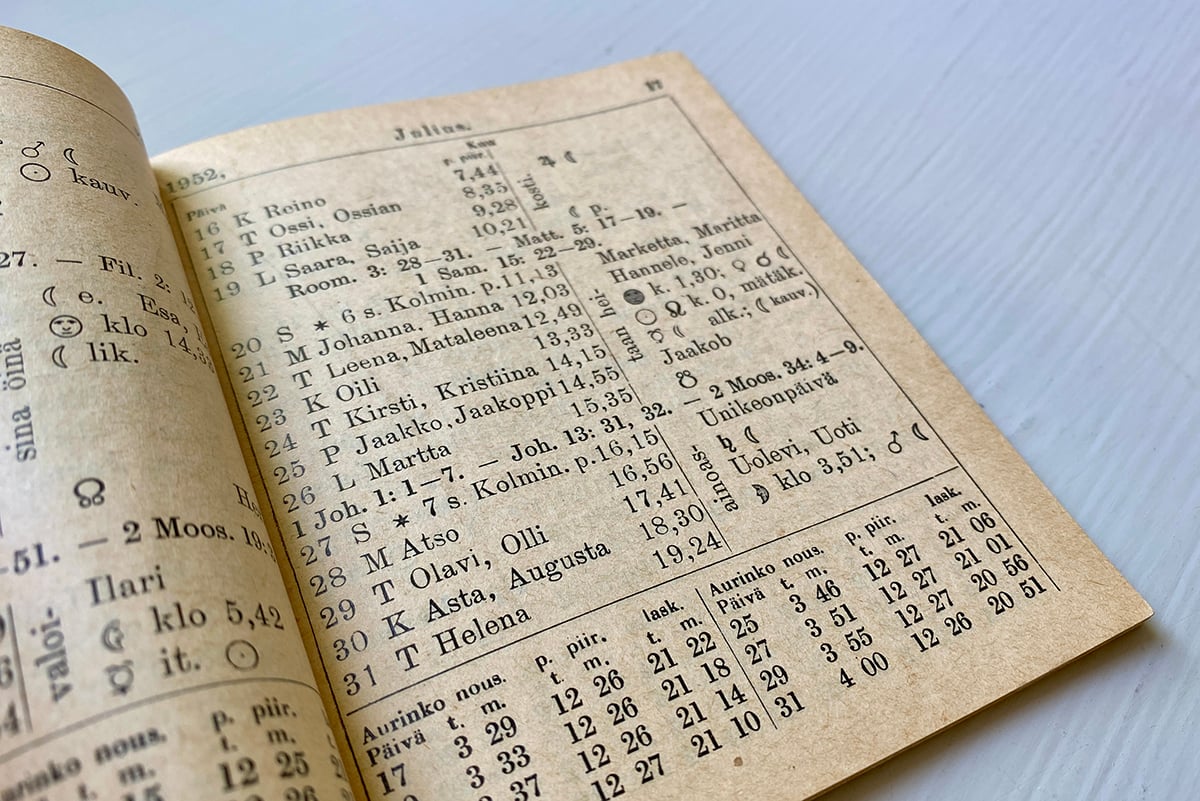 ♂ ☾
☉ kauv.
27. — Fil. 2: 12
☾ e. Esa,
klo 14,3
☾ lik.
sina öinä
☊
He
-51. — 2 Moos. 19:
Ilari
klo 5,42
☿ it. ☉
valoi-
Aurinko nous. p. piir.
t. m. t. m.
12 25
Julius. 17
1952,
Päivä
Kuu
p. piir.
16 K Reino 7,44 ♃ ☾
17 T Ossi, Ossian 8,35
18 P Riikka 9,28
19 L Saara, Saija 10,21 ☾ p.
kosti.
Room. 3: 28—31. — Matt. 5: 17—19. —
1 Sam. 15: 22—29.
20 S * 6 s. Kolmin. p. 11,13 Marketta, Maritta
21 M Johanna, Hanna 12,03 Hannele, Jenni
22 T Leena, Mataleena 12,49 k. 1,30; ♀ ♂ ☾
23 K Oili 13,33 ☉ ♌ k. 0, mätäk.
24 T Kirsti, Kristiina 14,15 ☿ ☾ alk.; (☾ kauv.)
25 P Jaakko, Jaakoppi 14,55 Jaakob
26 L Martta 15,35 ☋
taan hei-
1 Joh. 1: 1—7. — Joh. 13: 31, 32. — 2 Moos. 34: 4—9.
27 S * 7 s. Kolmin. p. 16,15 Unikeonpäivä
28 M Atso 16,56 ♄ ☾
29 T Olavi, Olli 17,41 Uolevi, Uoti
30 K Asta, Augusta 18,30 klo 3,51; ♂ ☾
31 T Helena 19,24
ainoas-
Aurinko nous. p. piir. lask.
Päivä t. m. t. m. t. m.
17 3 29 12 26 21 22
3 33 12 26 21 18
37 12 26 21 14
12 27 21 10
Aurinko nous. p. piir. lask.
Päivä t. m. t. m. t. m.
25 3 46 12 27 21 06
27 3 51 12 27 21 01
29 3 55 12 27 20 56
31 4 00 12 26 20 51